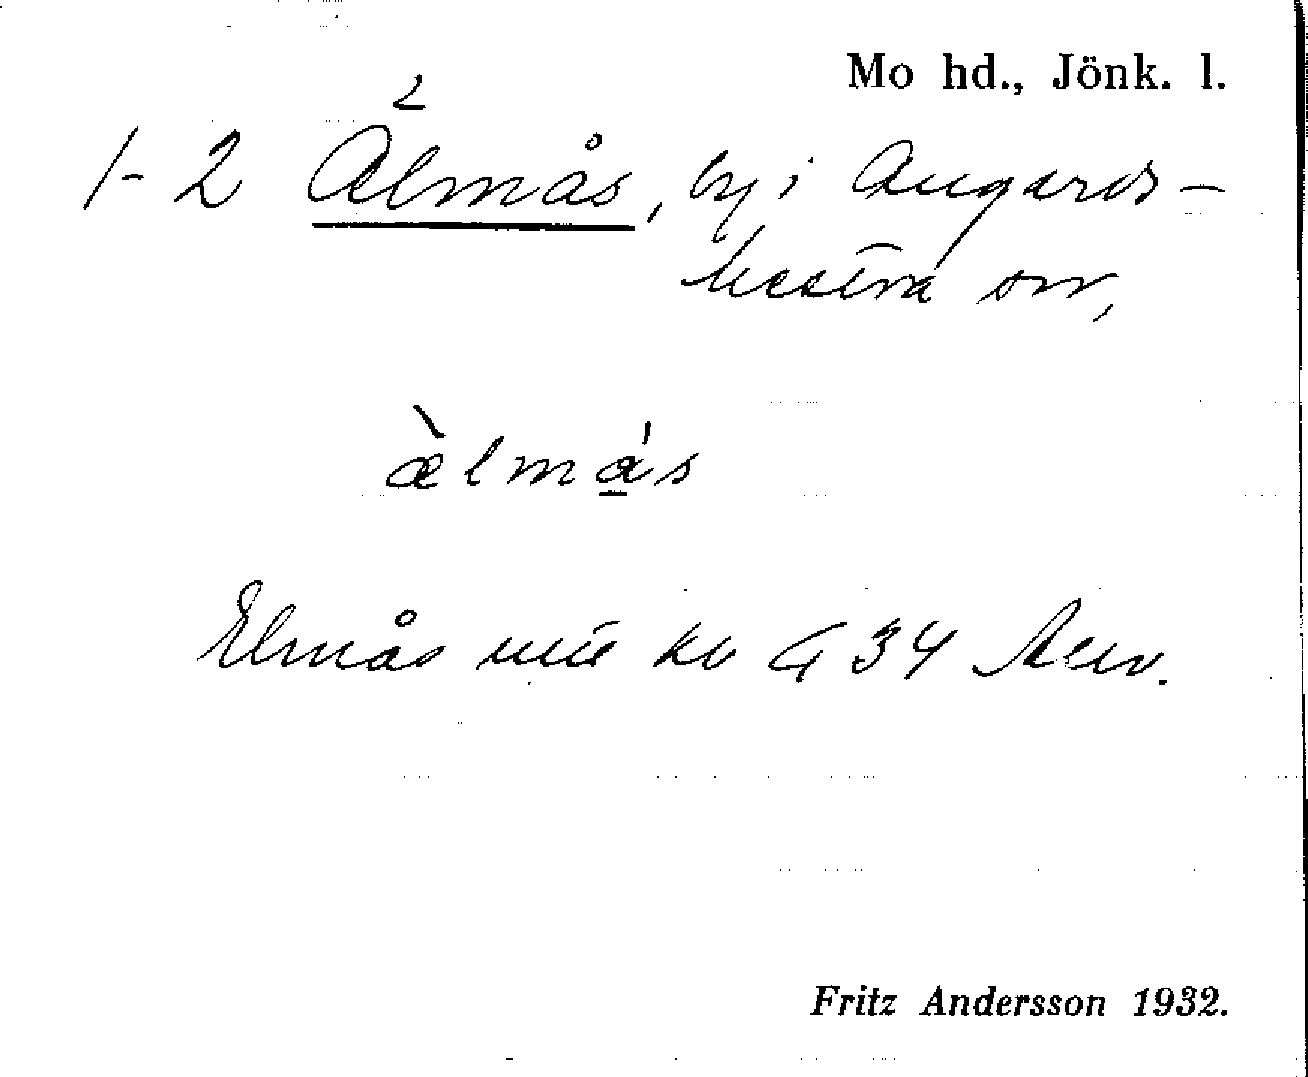 Mo hd., Jönk. l.
1-2 Älmås, by i Angerds-
hestra sn,
ælmås
Elmås G 34
Fritz Andersson 1932.